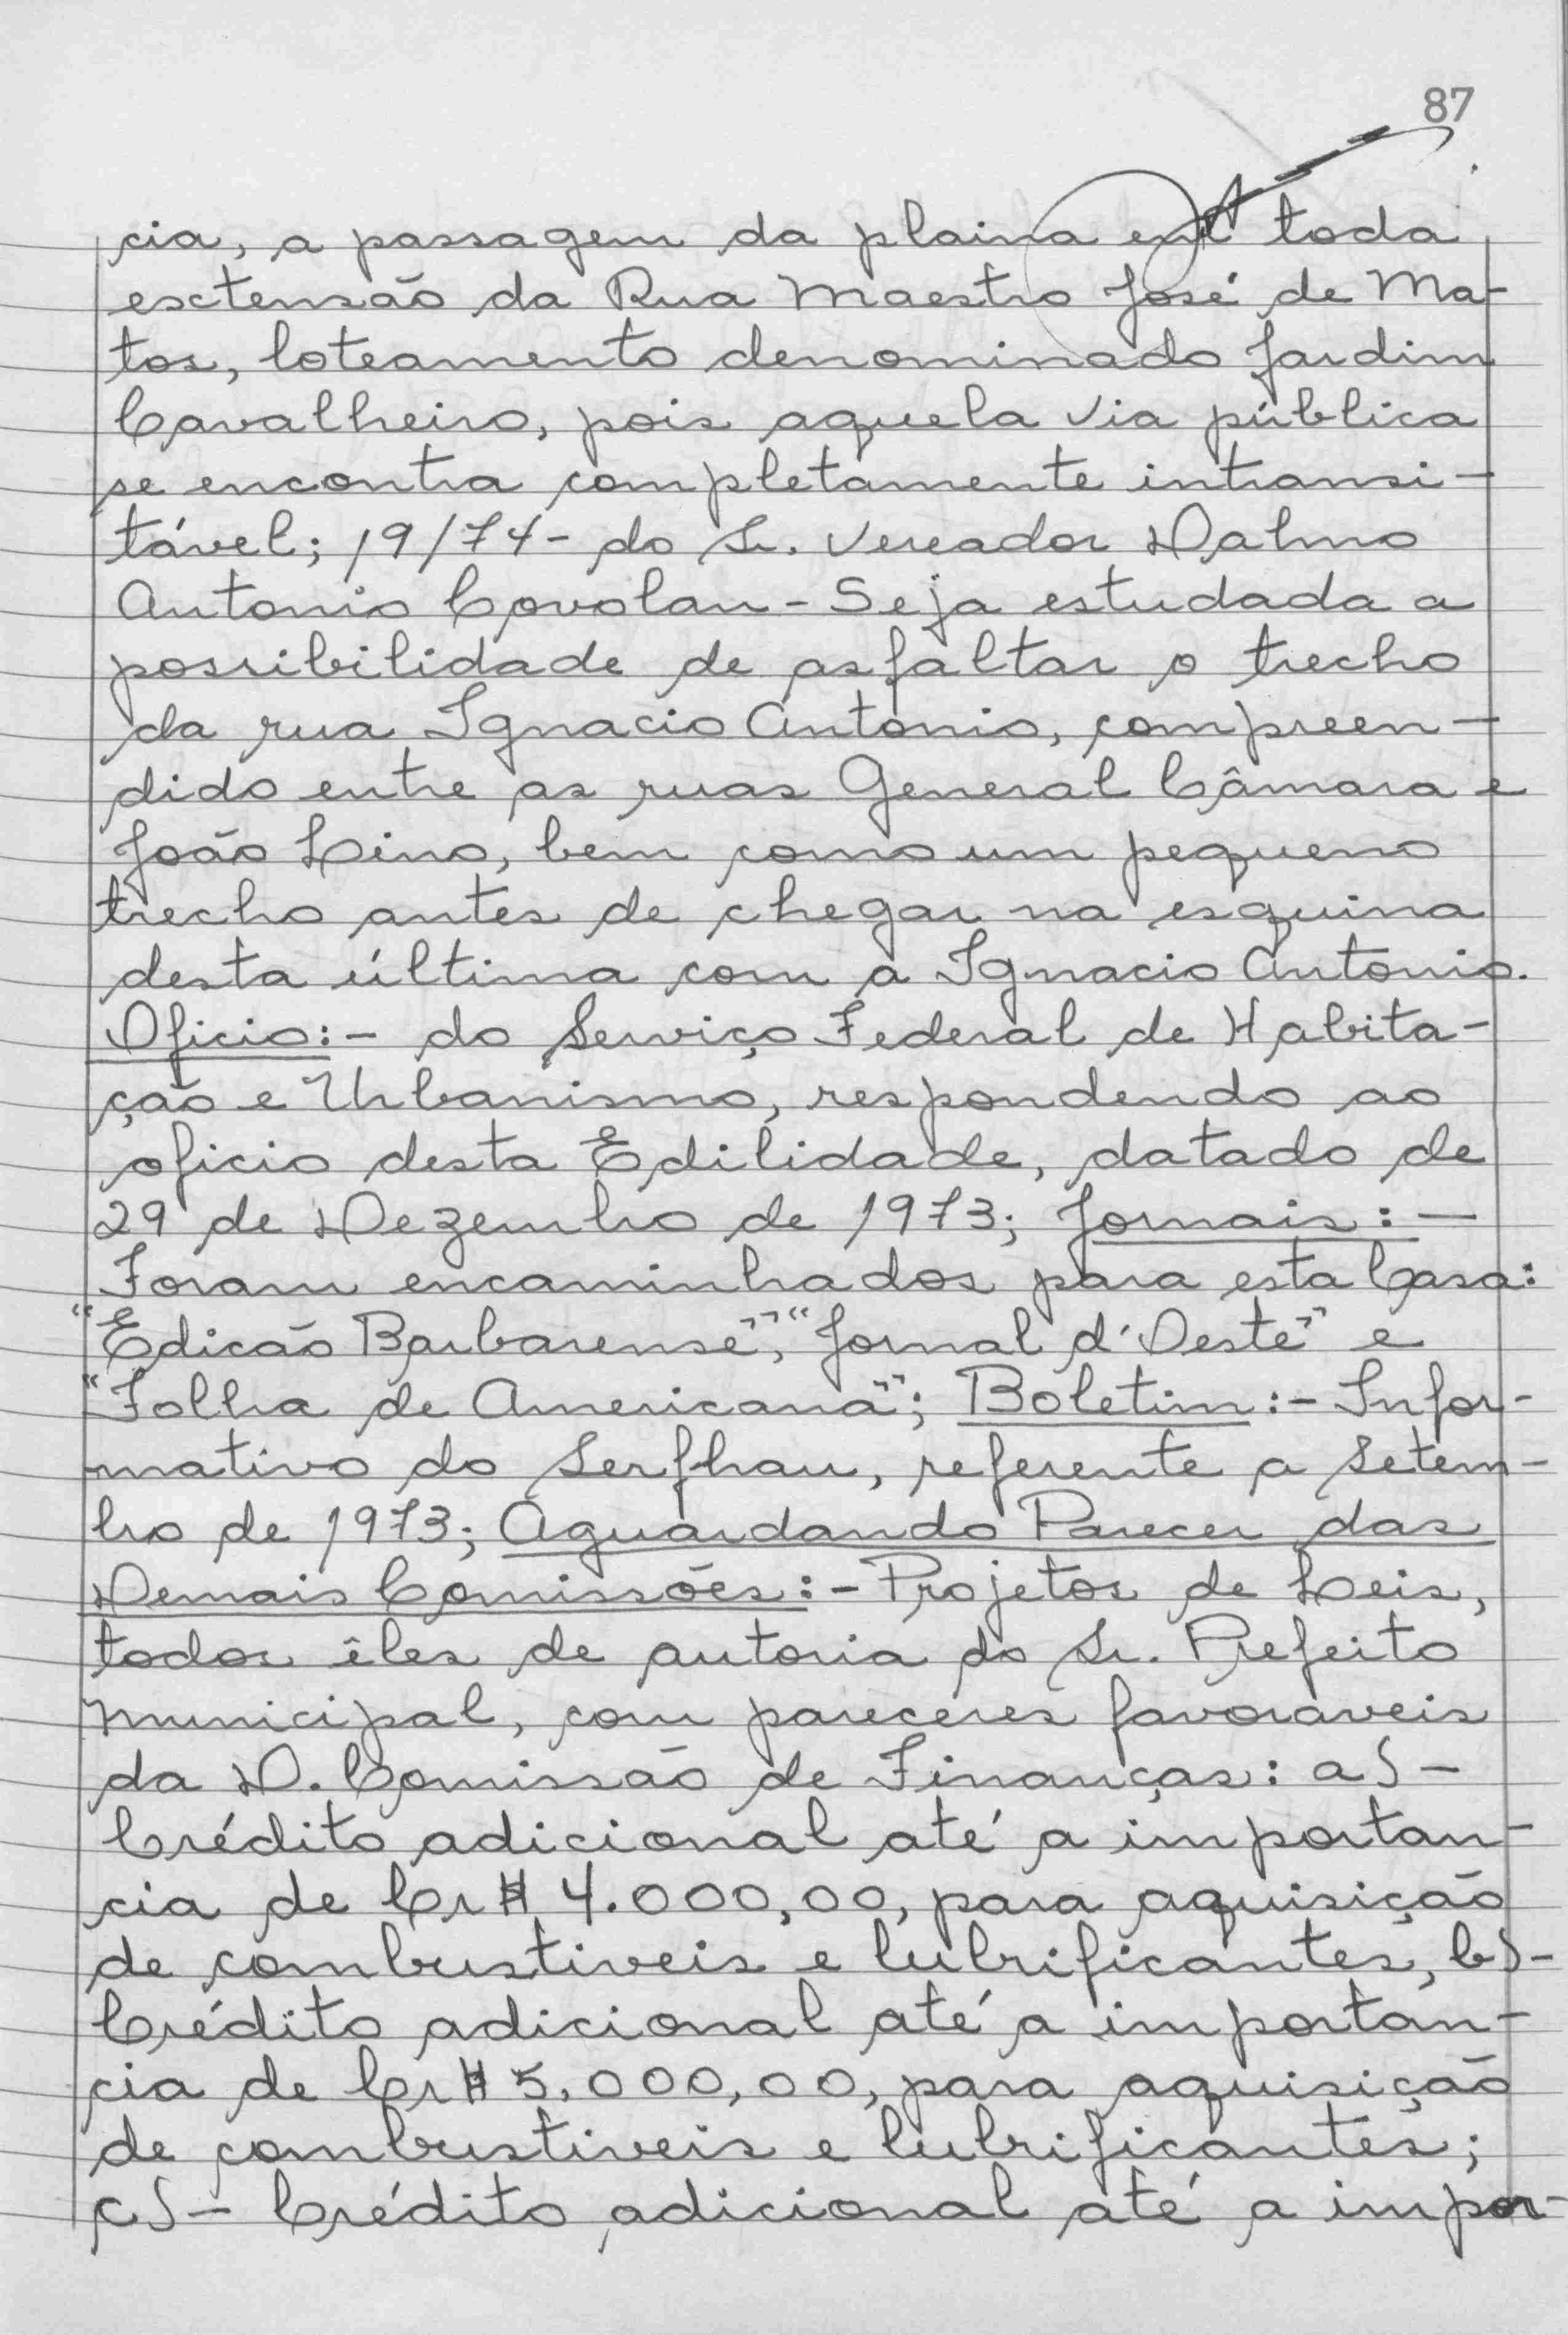 87
cia, a passagem da plaina em toda
esctensão da Rua Maestro José de Ma-
tos, loteamento denominado Jardim
Cavalheiro, pois aquela via pública
se encontra completamente intransi-
tável; 19/74- do Sr. Vereador Dalmo
Antonio Covolan - Seja estudada a
possibilidade de asfaltar o trecho
da rua Ignacio Antonio, compreen-
dido entre as ruas General Câmara e
João Lino, bem como um pequeno
trecho antes de chegar na esquina
desta última com a Ignacio Antonio.
Oficio:- do Serviço Federal de Habita-
ção e Urbanismo, respondendo ao
oficio desta Edilidade, datado de
29 de Dezembro de 1973; Jornais:-
Foram encaminhados para esta Casa:
"Edicão Barbarense", "Jornal d'Oeste" e
"Folha de Americana"; Boletim:- Infor-
mativo do Serfhau, referente a Setem-
bro de 1973; Aguardando Parecer das
Demais Comissões:- Projetos de Leis,
todos êles de autoria do Sr. Prefeito
Municipal, com pareceres favoraveis
da D. Comissão de Finanças: a)-
Crédito adicional até a importan-
cia de Cr$ 4.000,00, para aquisição
de combustiveis e lubrificantes, b)-
Crédito adicional até a importan-
cia de Cr$ 5.000,00, para aquisição
de combustiveis e lubrificantes;
c)- Crédito adicional até a impor-